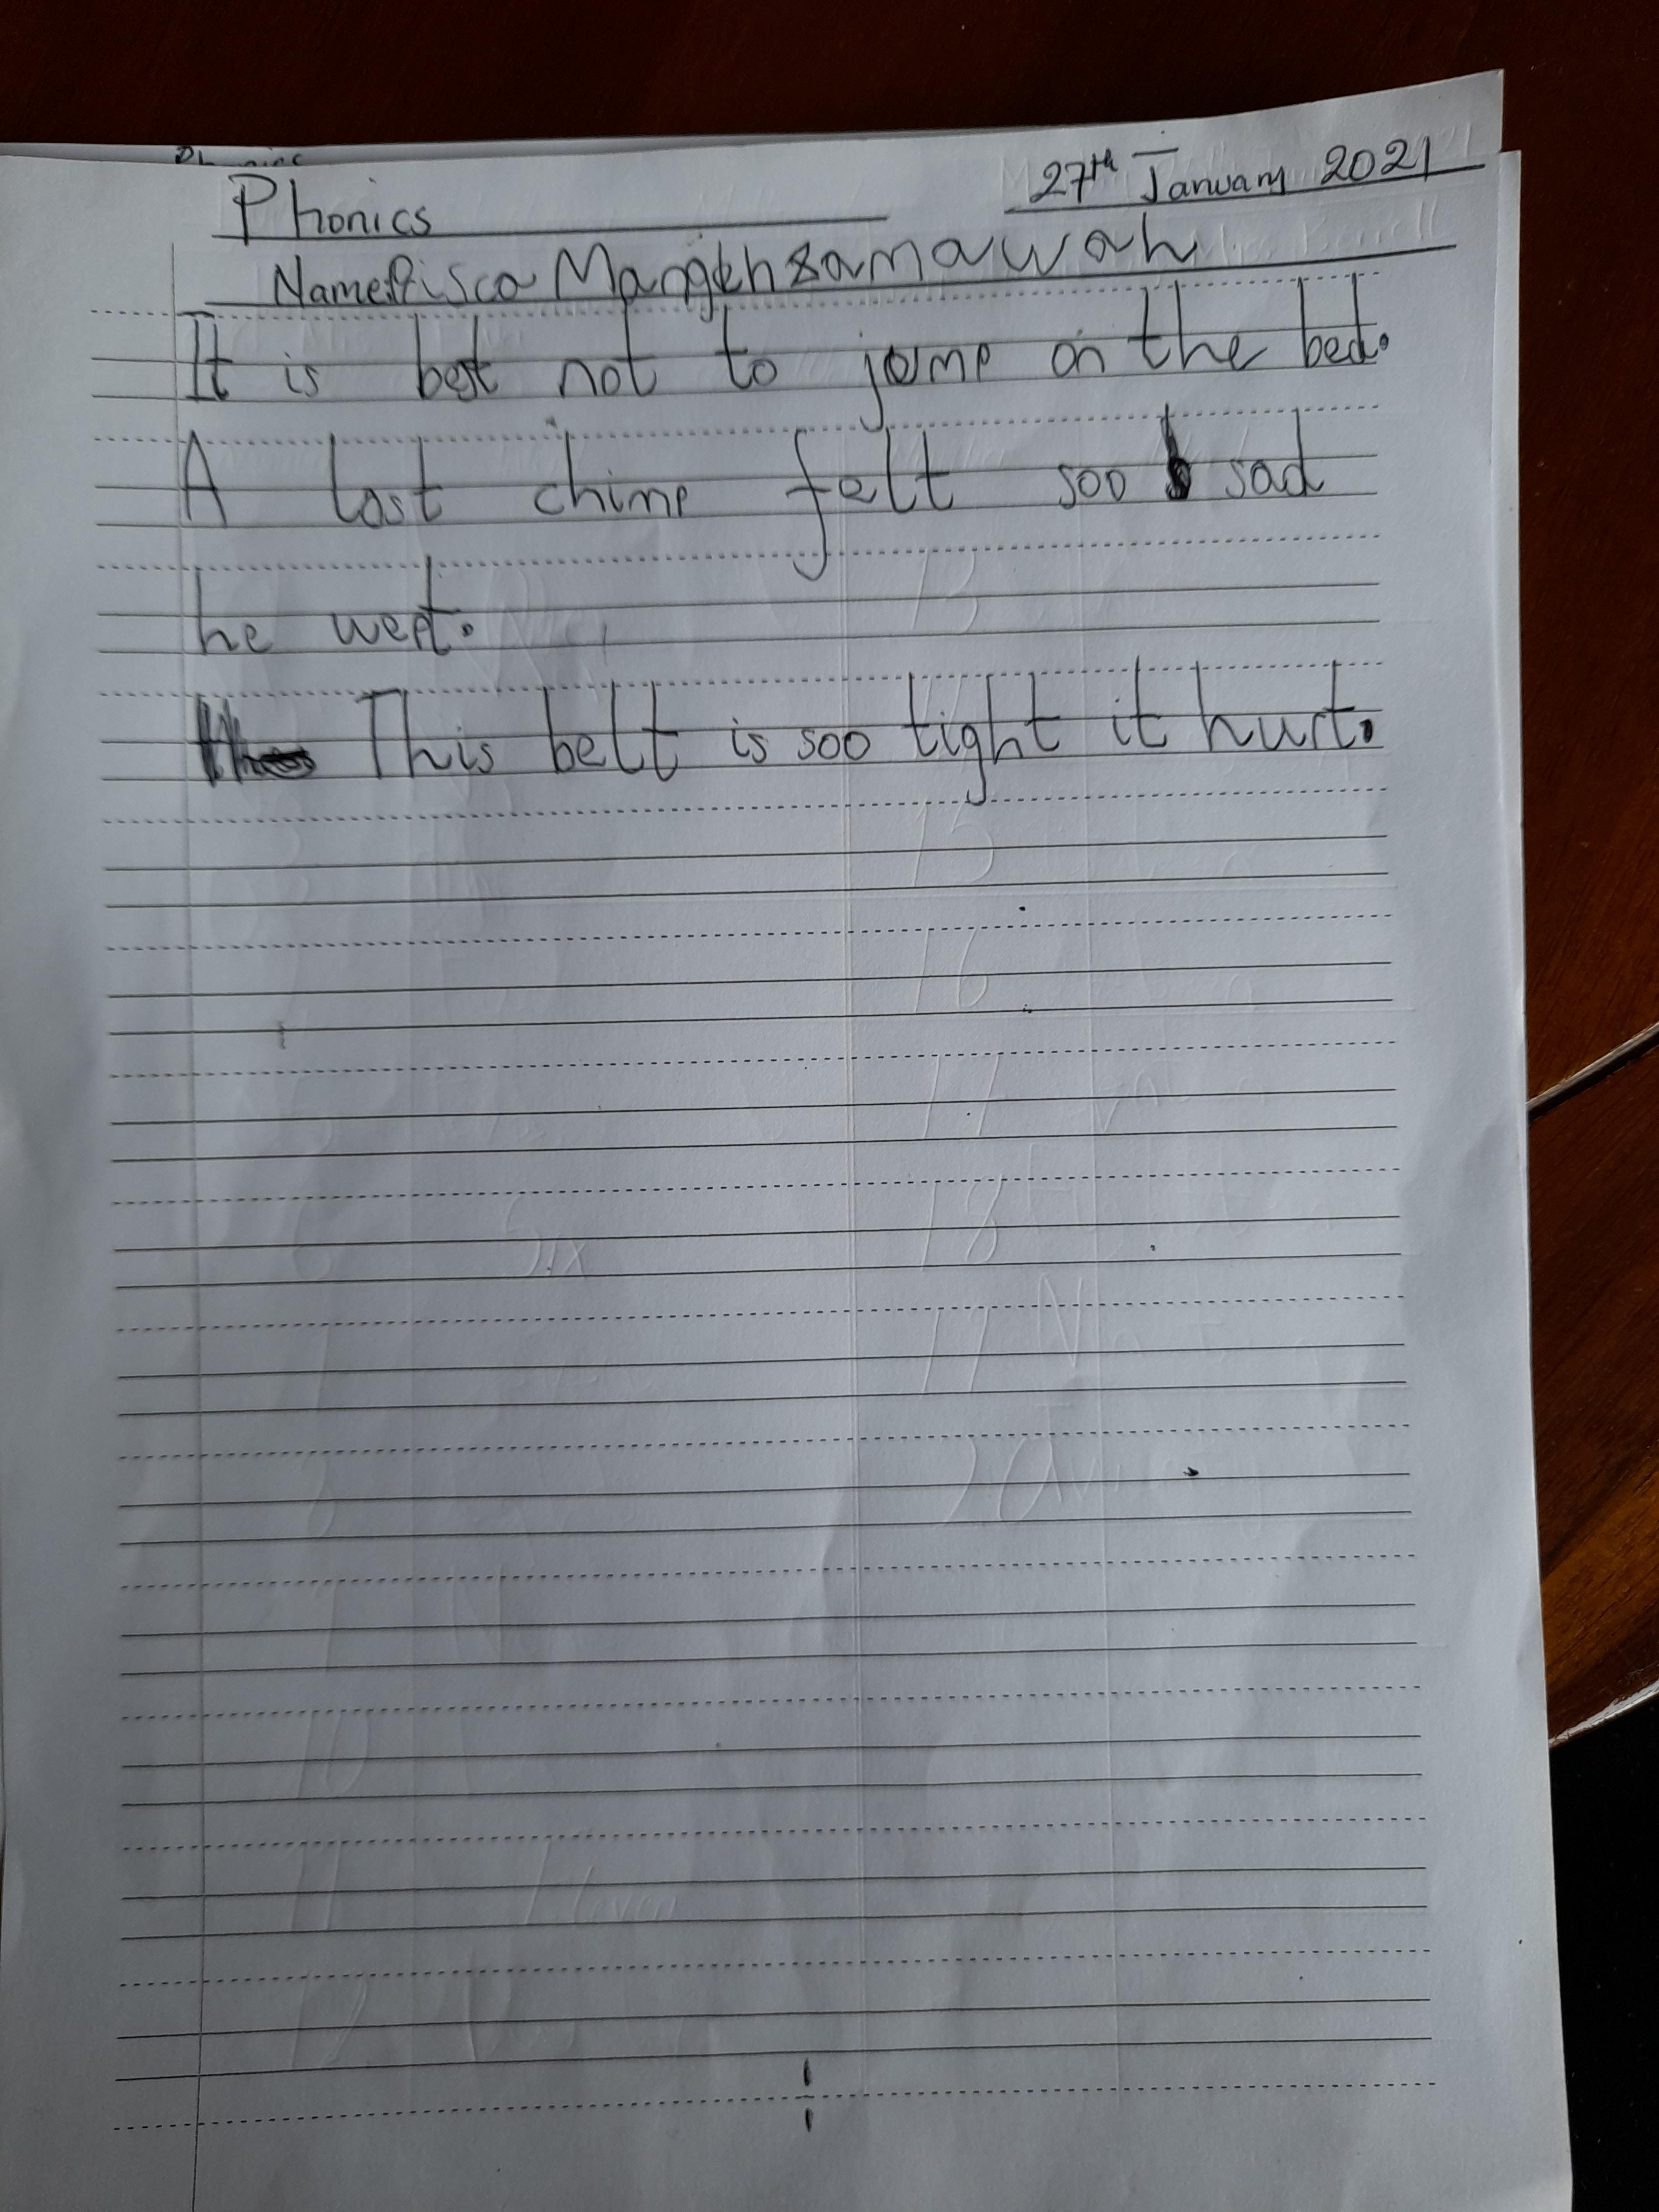 Phonics
27th January 2021
Name:
It is best not to jump on the bed.
A lost chimp felt soo sad
he wept.
This belt is soo tight it hurt.